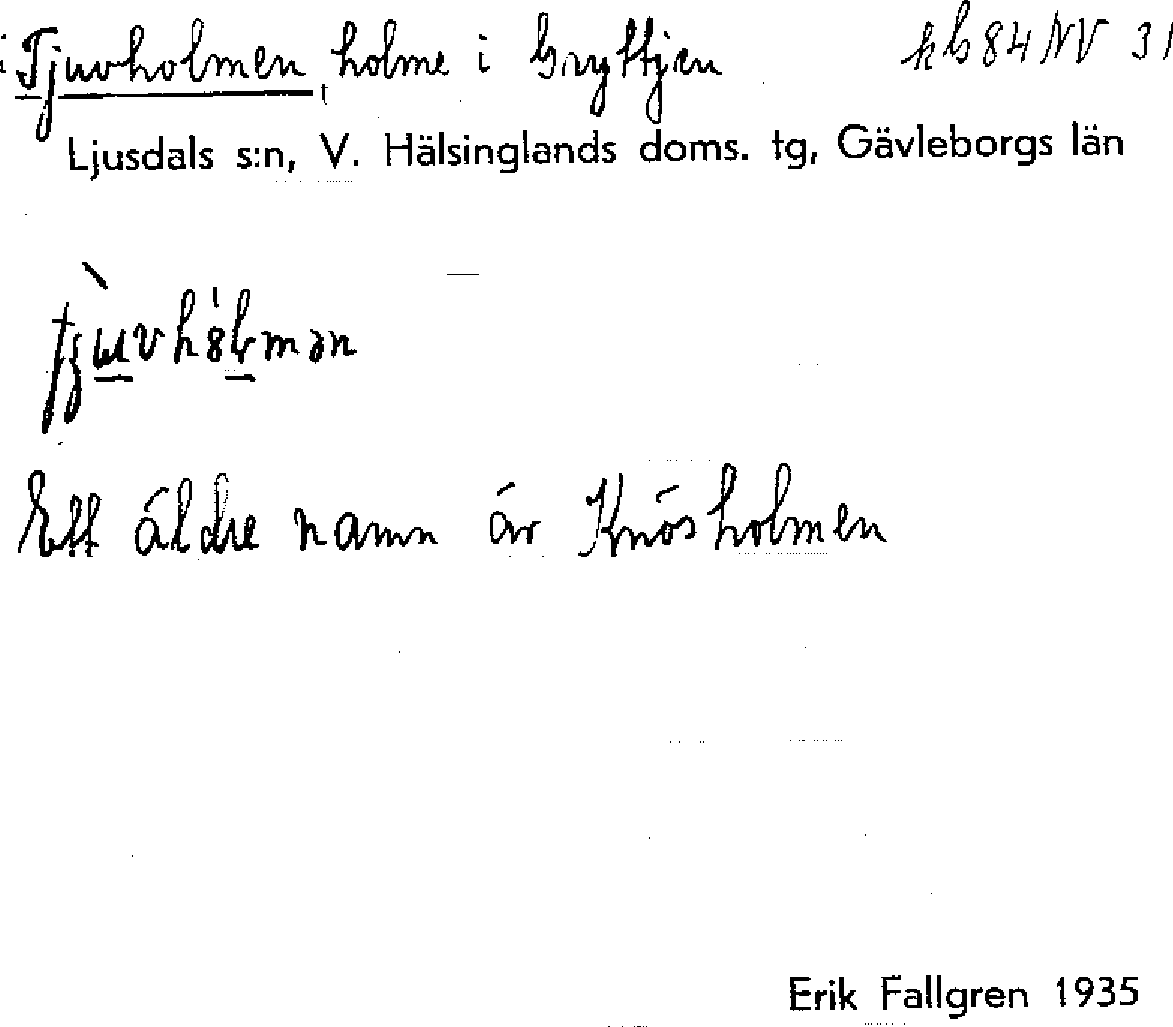 Tjuvholmen, holme i Gryttjen kb 84 NV 31
Ljusdals s:n, V. Hälsinglands doms. tg, Gävleborgs län
Ett äldre namn är Knösholmen
Erik Fallgren 1935